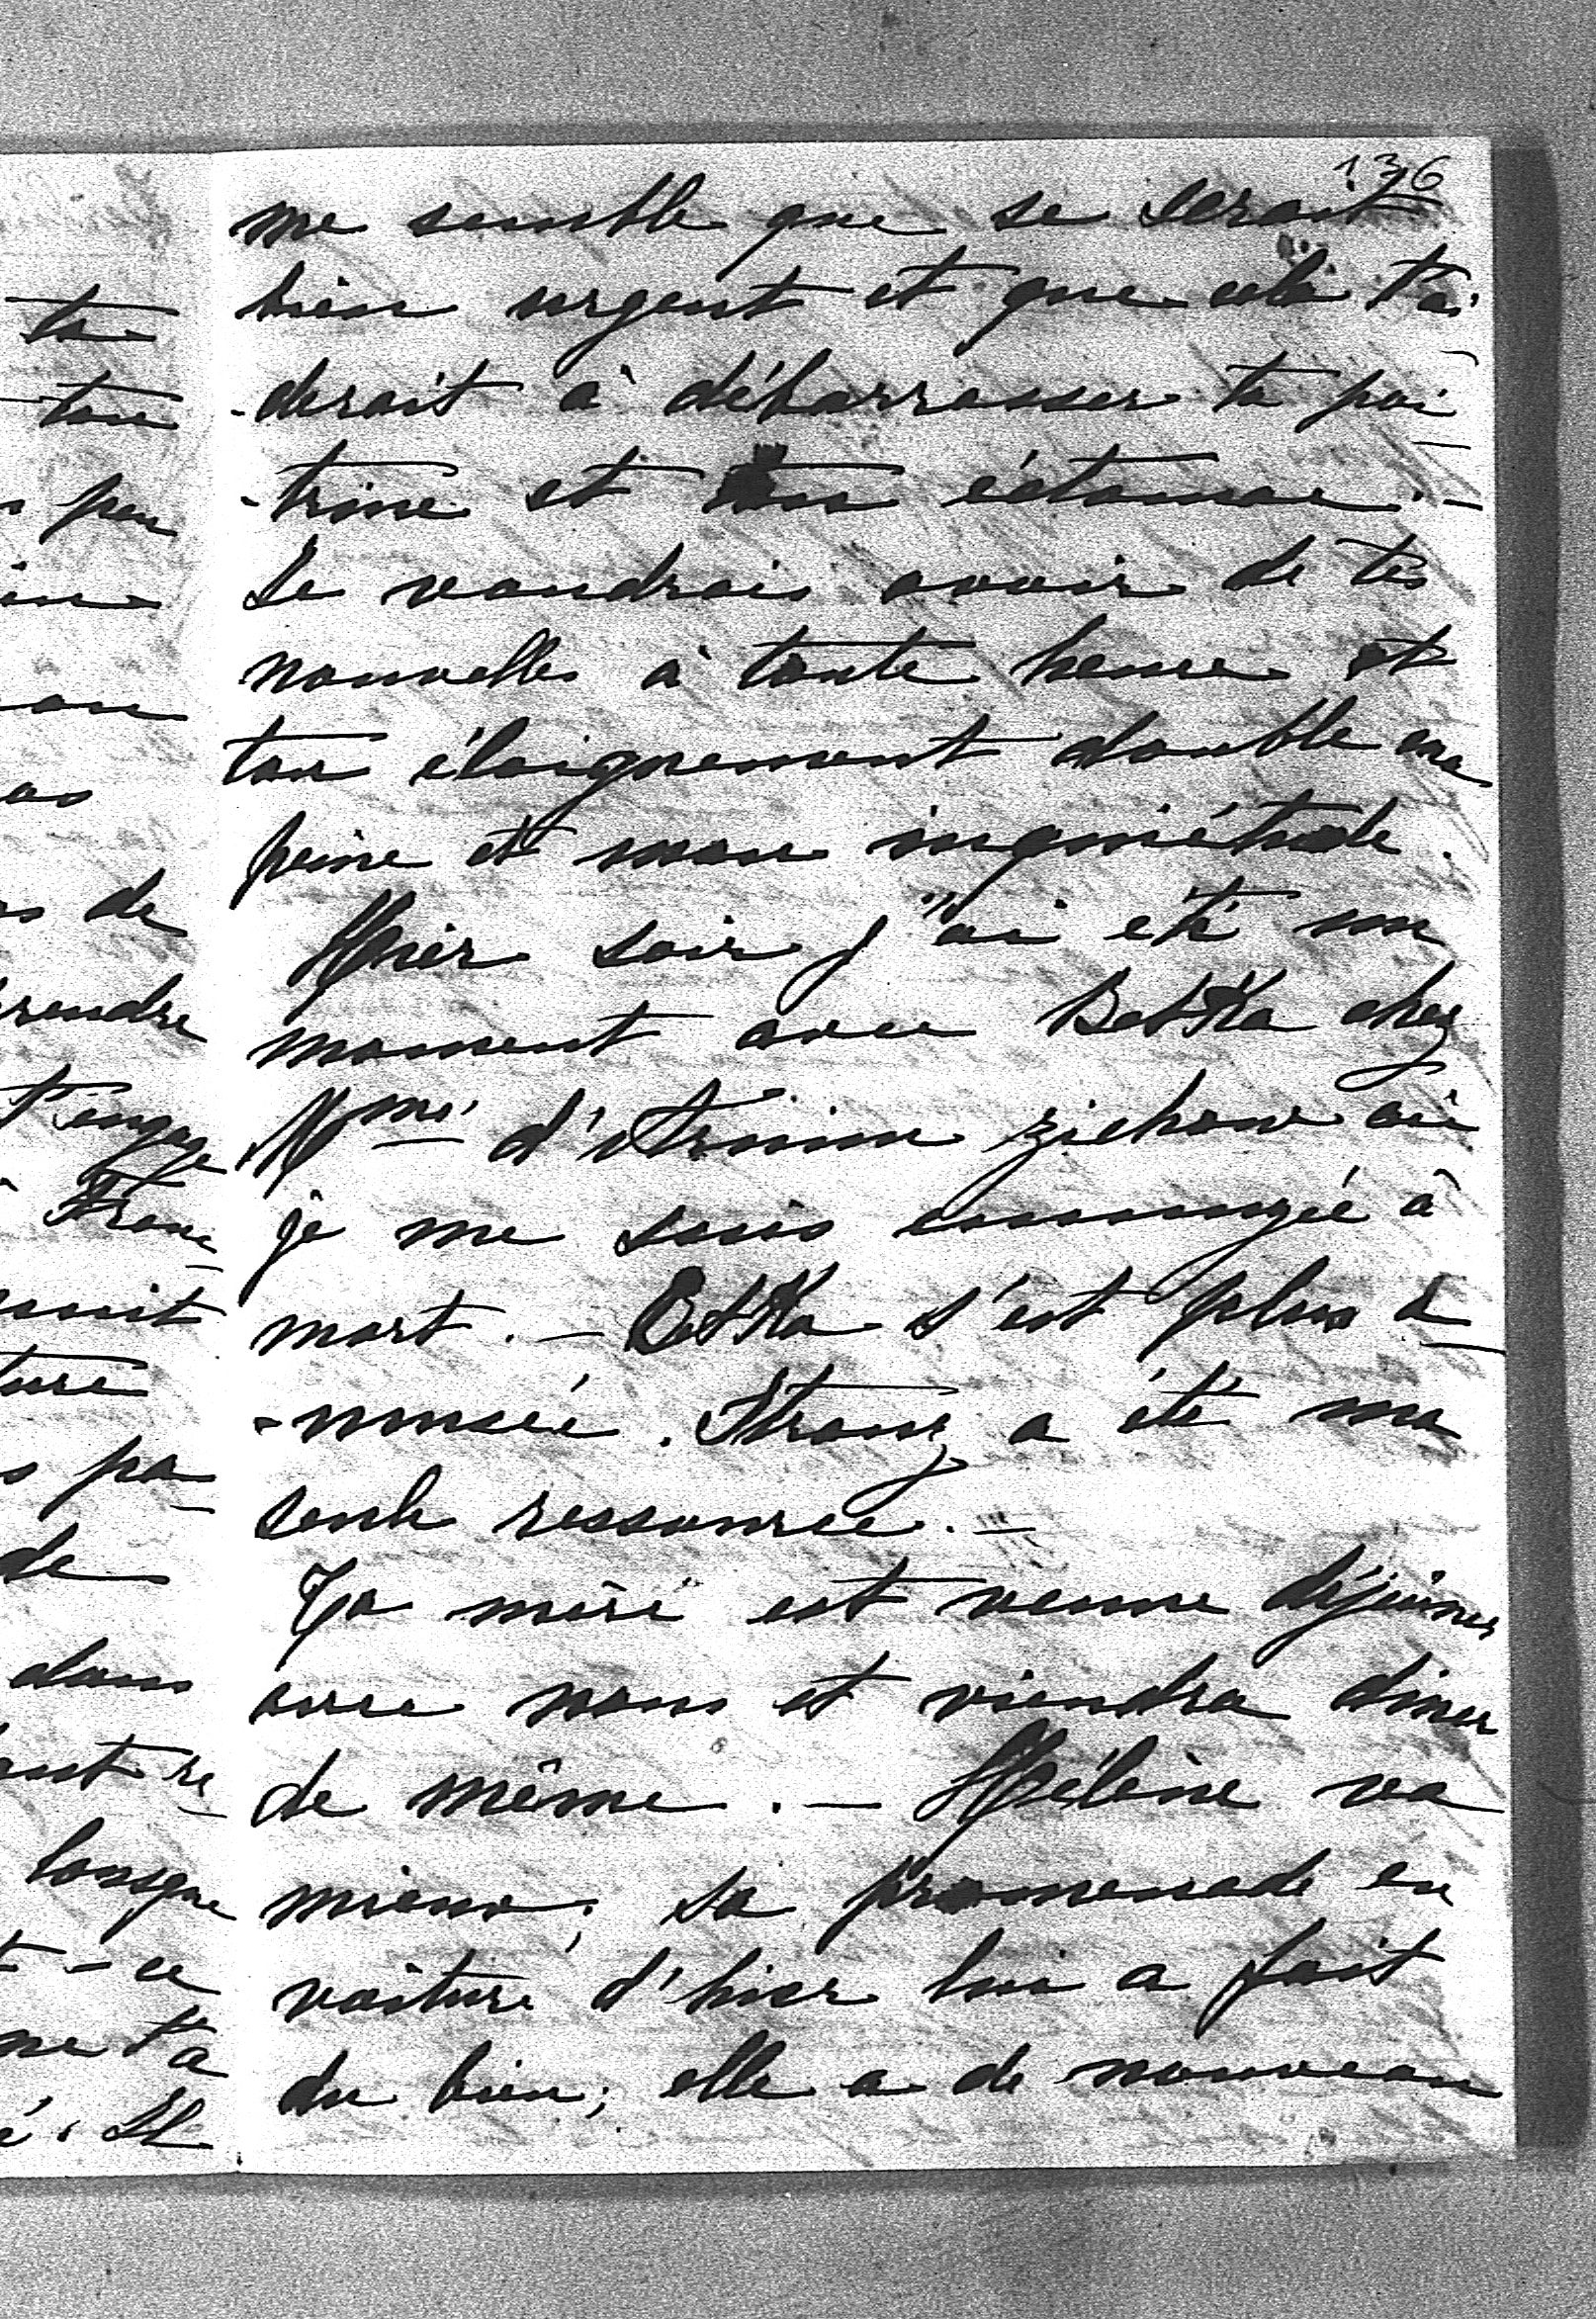 136
me semble que se serait
bien urgent et que cela t'ai
-derait à débarrasser ta poi-
-trine et ton éstomac. -
Je voudrais avoir de tes
nouvelles à toute heure et
ton éloignement double ma
peine et mon inquiétude.
Hier soir j'ai été un
moment avec Betka chez
Mme d' où
je me suis ennuyée à
mort. - Betka s'est plus a-
-musée. Strouz a été ma
seule ressource. -
Ta mère est venue déjeuner
avec nous et viendra diner
de même. - Hélène va
mieux; sa promenade en
voiture d'hier lui a fait
du bien; elle a de nouveau
ta
ton
peu
de
rendre
t'engage
Fran-
nuit
pa-
de
dans
re-
lorsque
t-ce
ne t'a
é. Il